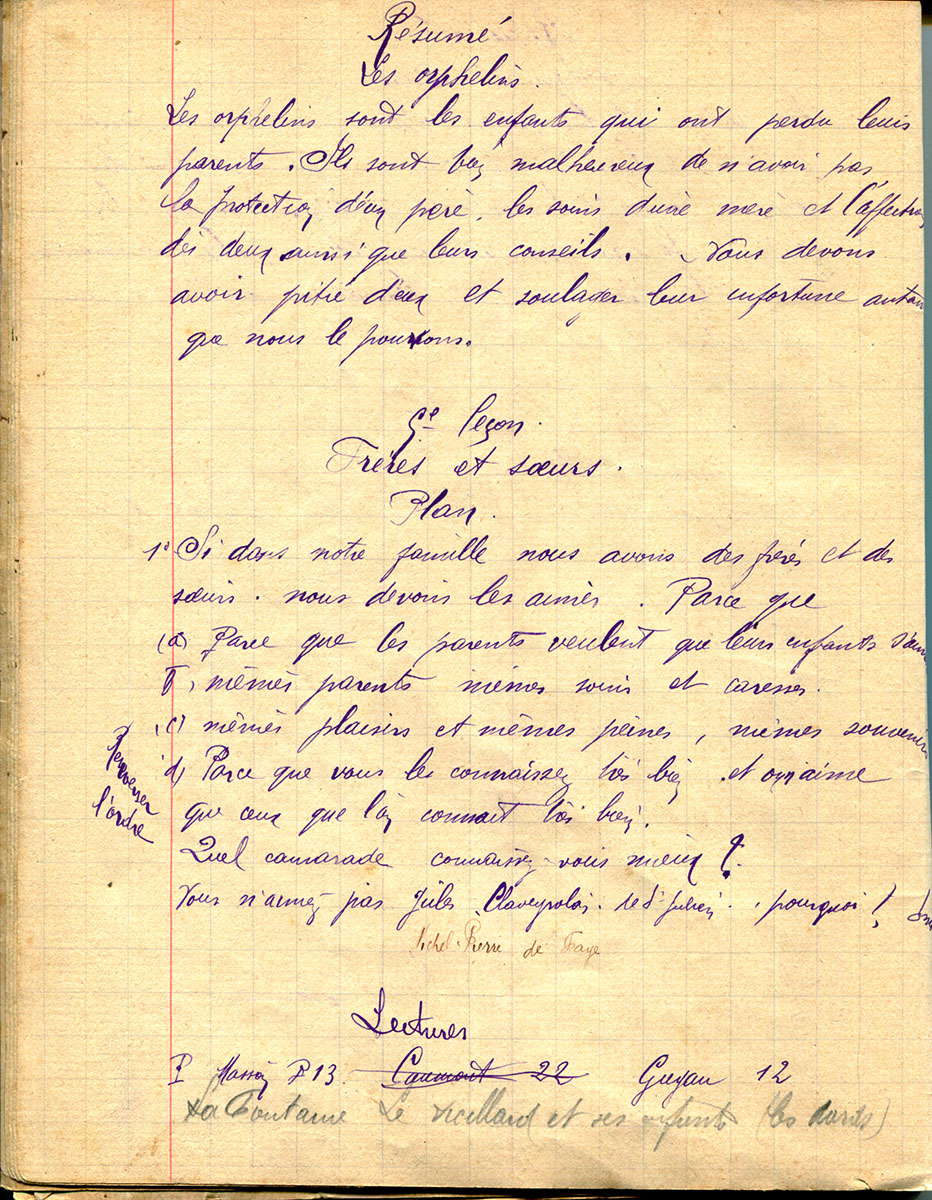 Résumé
Les orphelins.
Les orphelins sont les enfants qui ont perdu leurs
parents. Ils sont bien malheureux de n'avoir pas
la protection d'un père, les soins d'une mère et l'affection
des deux ainsi que leurs conseils. Nous devons
avoir pitié d'eux et soulager leur infortune autan
que nous le pouvons.
5e leçon.
Frères et sœurs.
Plan.
1° Si dans notre famille nous avons des frères et des
sœurs. nous devons les aimer. Parce que
(a) Parce que les parents veulent que leurs enfants s'aim
b) mêmes parents mêmes soins et caresses.
(c) mêmes plaisirs et mêmes peines, mêmes souvenirs
d) Parce que vous les connaissez très bien et on n'aime
que ceux que l'on connait très bien.
Renverser
l'ordre
Quel camarade connaissez-vous mieux ?
Vous n'aimez pas Jules Claveyrolas de St Julien. pourquoi !
Michel Pierre de Faye
Lectures
P Masson P 13. Caumont 22 Guyau 12
La Fontaine Le vieillard et ses enfants (les dards)